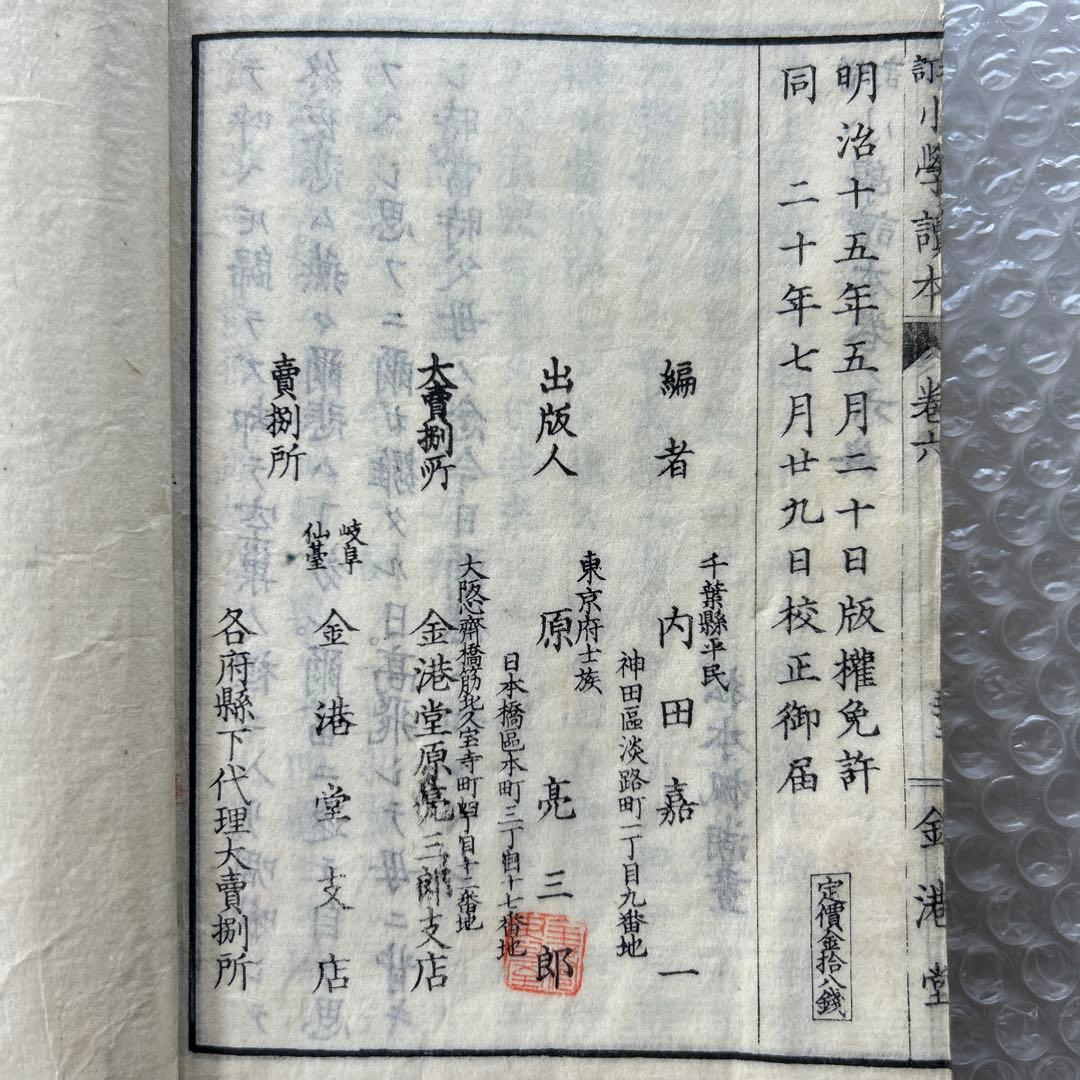 訂小學讀本 卷六
金港堂
明治十五年五月二十日版權免許
同 二十年七月廿九日校正御届
定價金拾八錢
編者
千葉縣平民
内田嘉一
神田區淡路町一丁目九番地
出版人
東京府士族
原亮三郎
日本橋區本町三丁目十七番地
大賣捌所
大阪心齊橋筋北久宝寺町四丁目十二番地
金港堂原亮三郎支店
賣捌所
岐阜
仙臺
金港堂支店
各府縣下代理大賣捌所